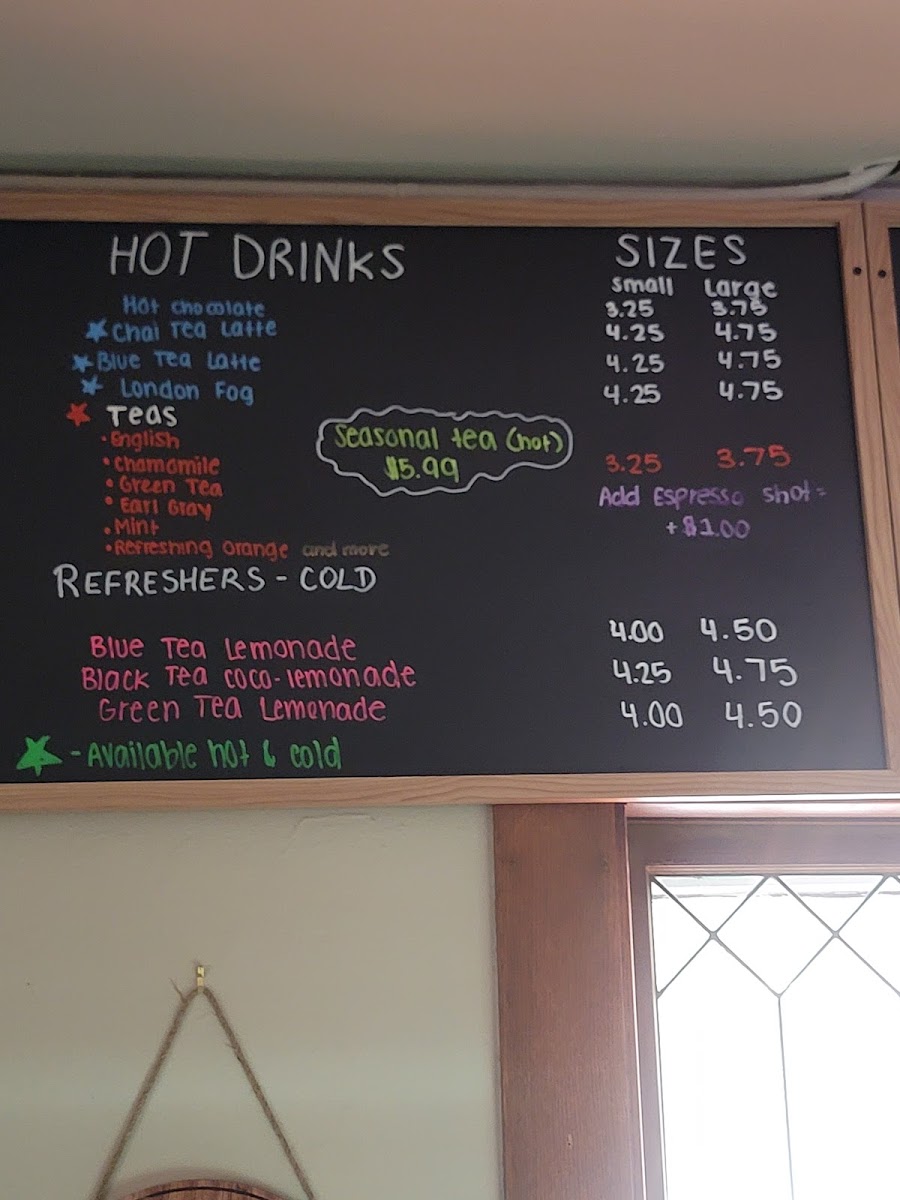 HOT DRINKS SIZES
small Large
Hot chocolate 3.25 3.75
Chai Tea Latte 4.25 4.75
Blue Tea Latte 4.25 4.75
London Fog 4.25 4.75
Teas
• English
• Chamomile
• Green Tea
• Earl Gray
• Mint
• Refreshing Orange and more
Seasonal tea (hot)
$5.99
3.25 3.75
Add Espresso Shot =
+ $1.00
REFRESHERS - COLD
Blue Tea Lemonade 4.00 4.50
Black Tea coco-lemonade 4.25 4.75
Green Tea Lemonade 4.00 4.50
- Available hot & cold